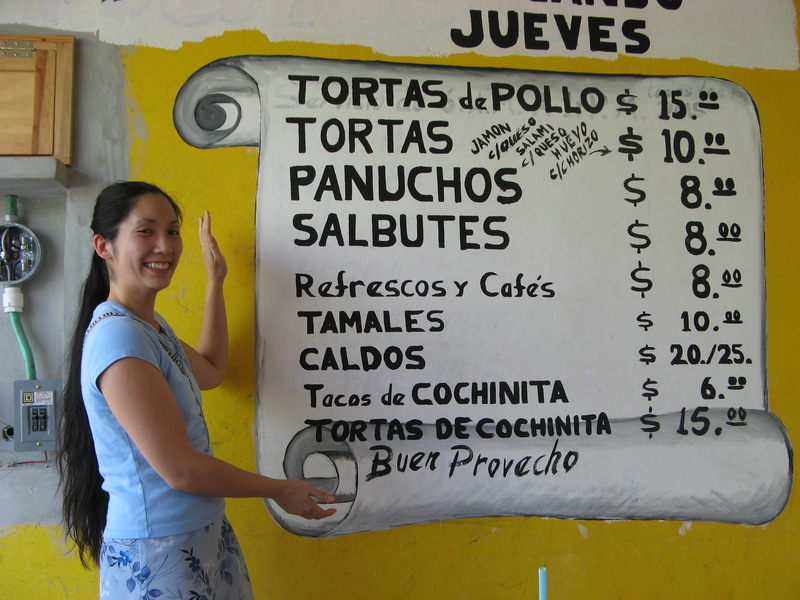 JUEVES
TORTAS de POLLO $ 15.00
TORTAS JAMON C/QUESO SALAMI C/QUESO HUEVO C/CHORIZO $ 10.00
PANUCHOS $ 8.00
SALBUTES $ 8.00
Refrescos y Cafés $ 8.00
TAMALES $ 10.00
CALDOS $ 20./25.
Tacos de COCHINITA $ 6.00
TORTAS DE COCHINITA $ 15.00
Buen Provecho